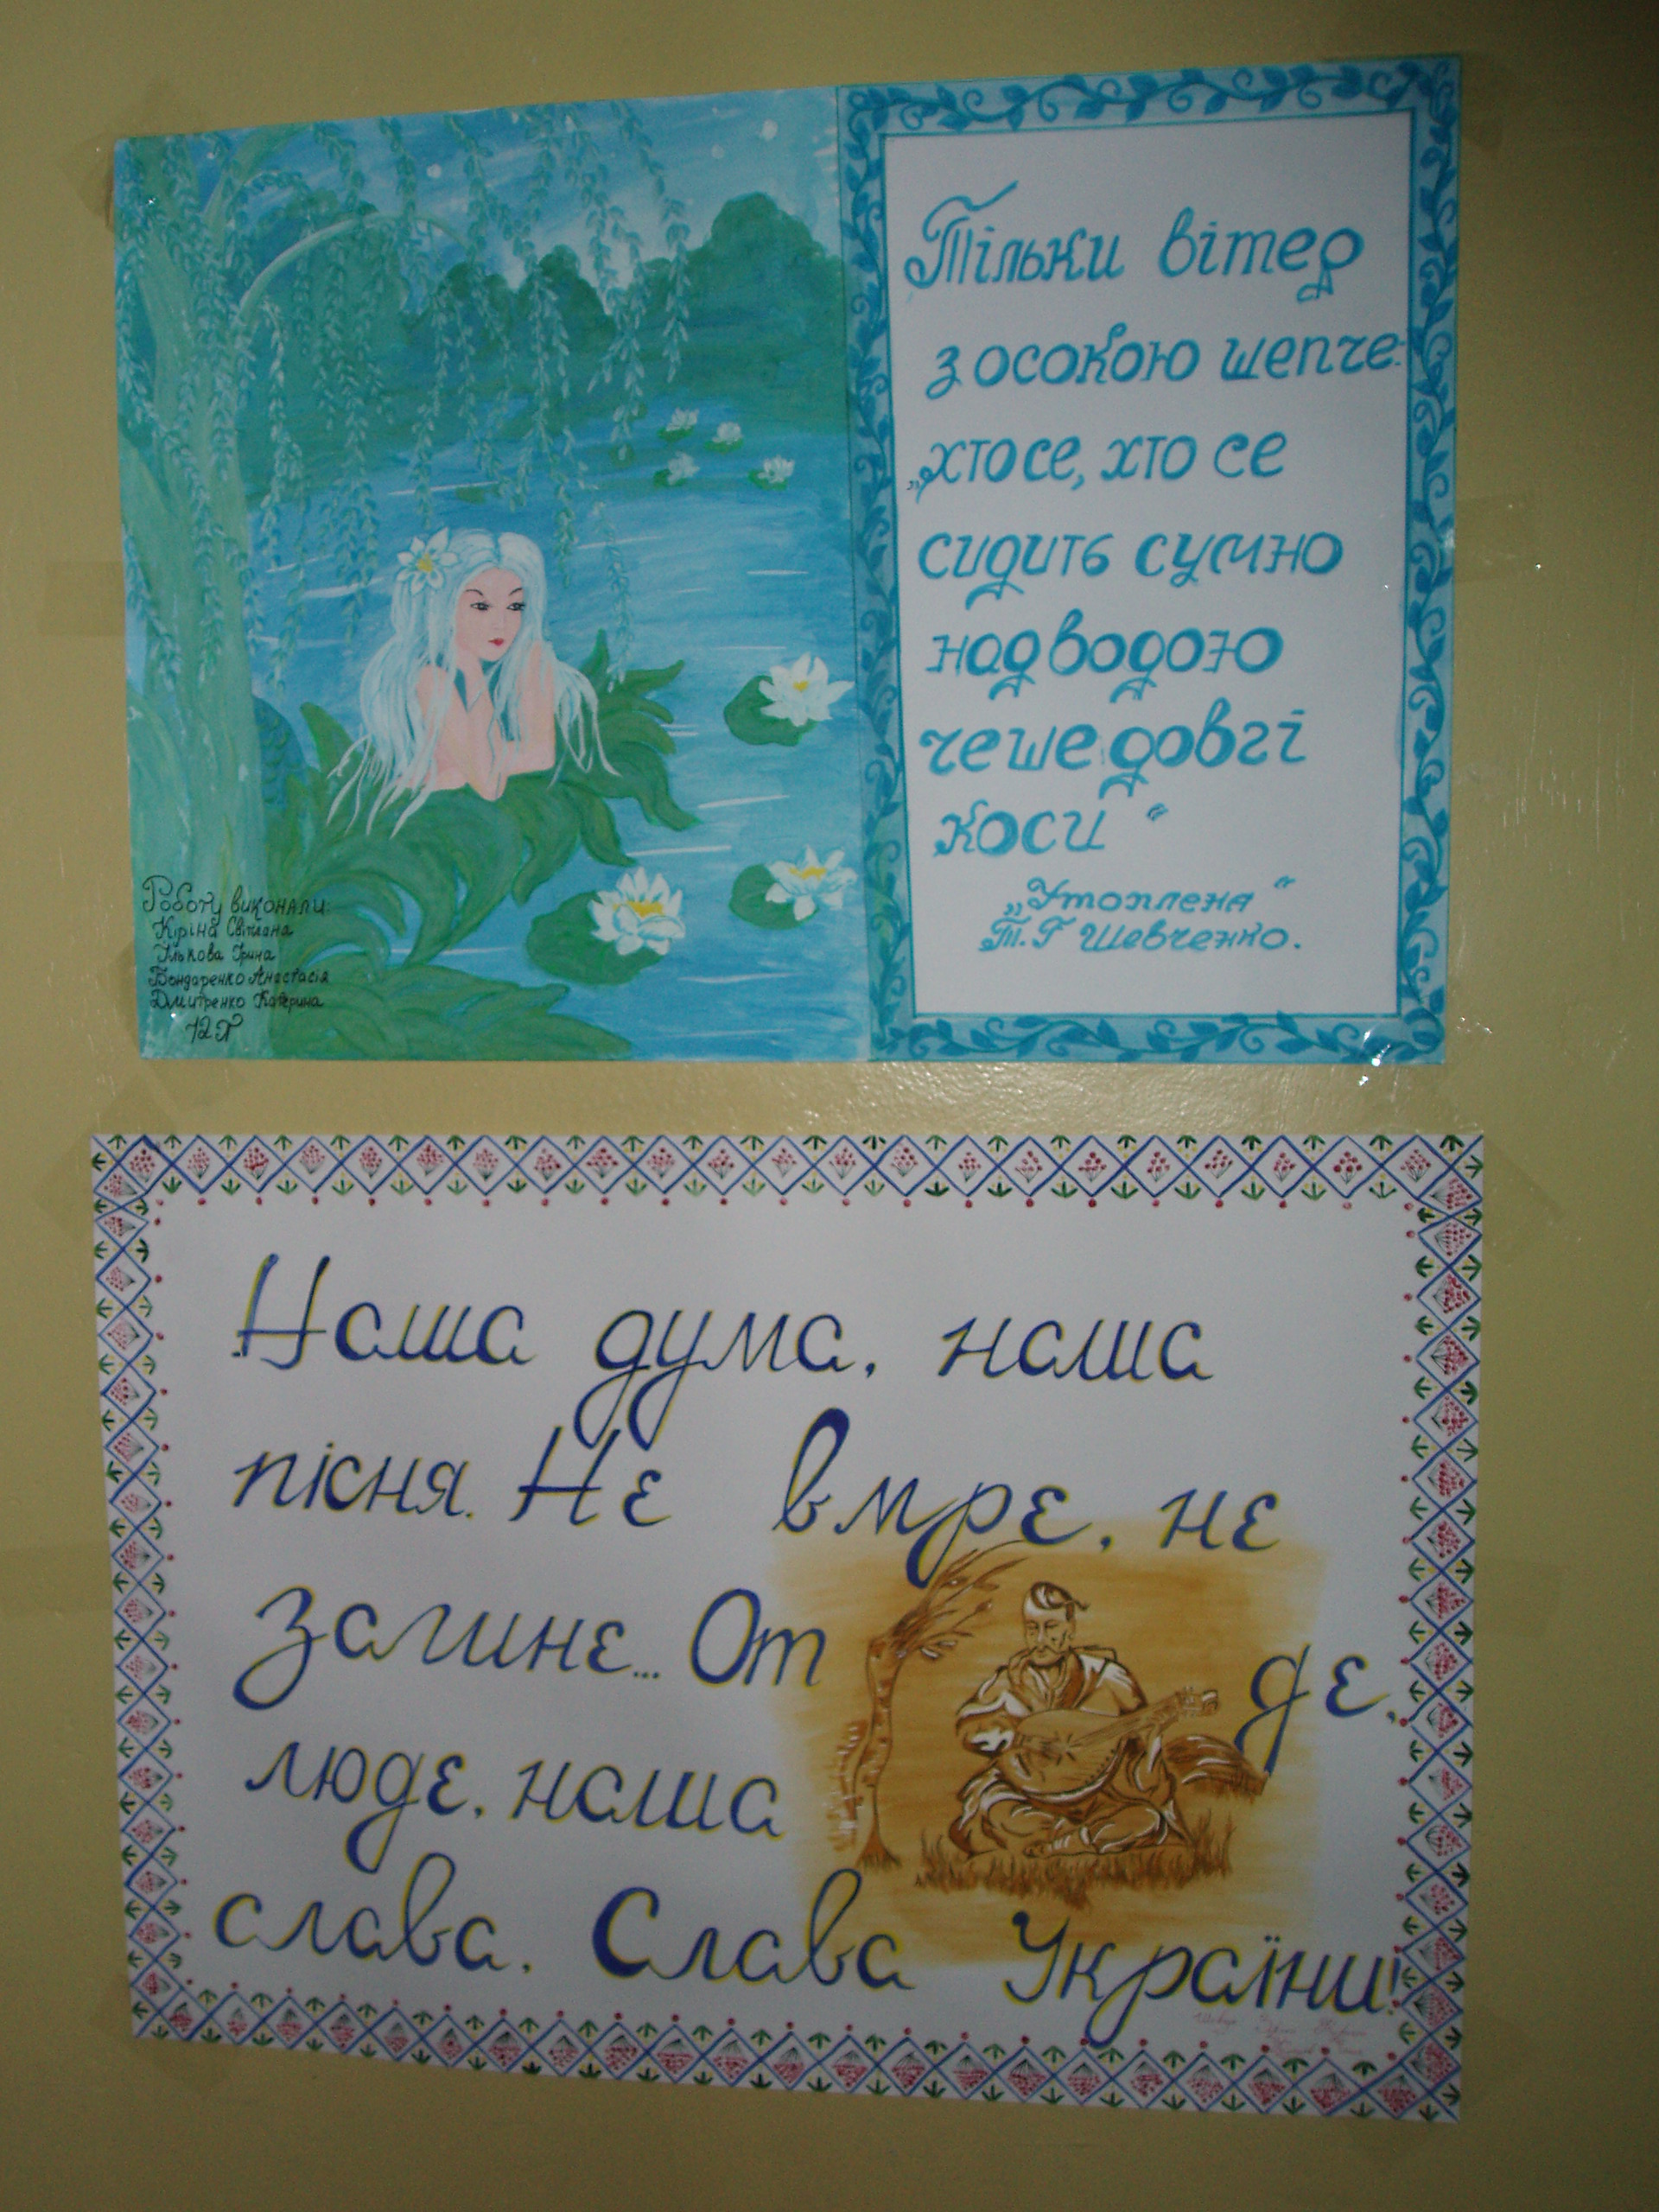 Тільки вітер
з осокою шепче:
„хто се, хто се
сидить сумно
над водою
чеше довгі
коси“
„Утоплена“
Т.Г Шевченко.
Роботу виконали:
Кіріна Світлана
Ількова Ірина
Бондаренко Анастасія
Дмитренко Катерина
Наша дума, наша
пісня. Не вмре, не
загине... От де,
люде, наша
слава. Слава України!